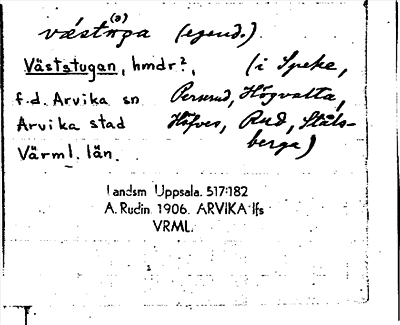 (a)
(egend.).
Väststugan, hmdr?, (i Speke,
f.d. Arvika sn Perserud, Högvalta,
Arvika stad Rud, Ståls-
Värml. län. berga)
Landsm Uppsala. 517:182
A. Rudin 1906. ARVIKA lfs
VRML.